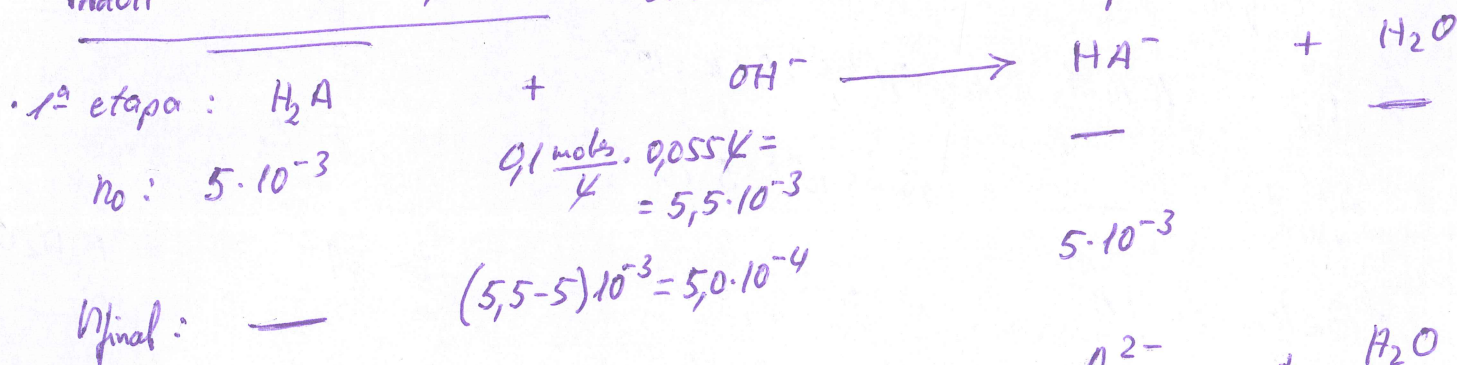 · 1ª etapa : H₂A + OH⁻ ⟶ HA⁻ + H₂O
n₀ : 5·10⁻³ 0,1 moles/L · 0,055 L = — —
= 5,5·10⁻³
5·10⁻³
nfinal : — (5,5-5)10⁻³ = 5,0·10⁻⁴
A²⁻ + H₂O